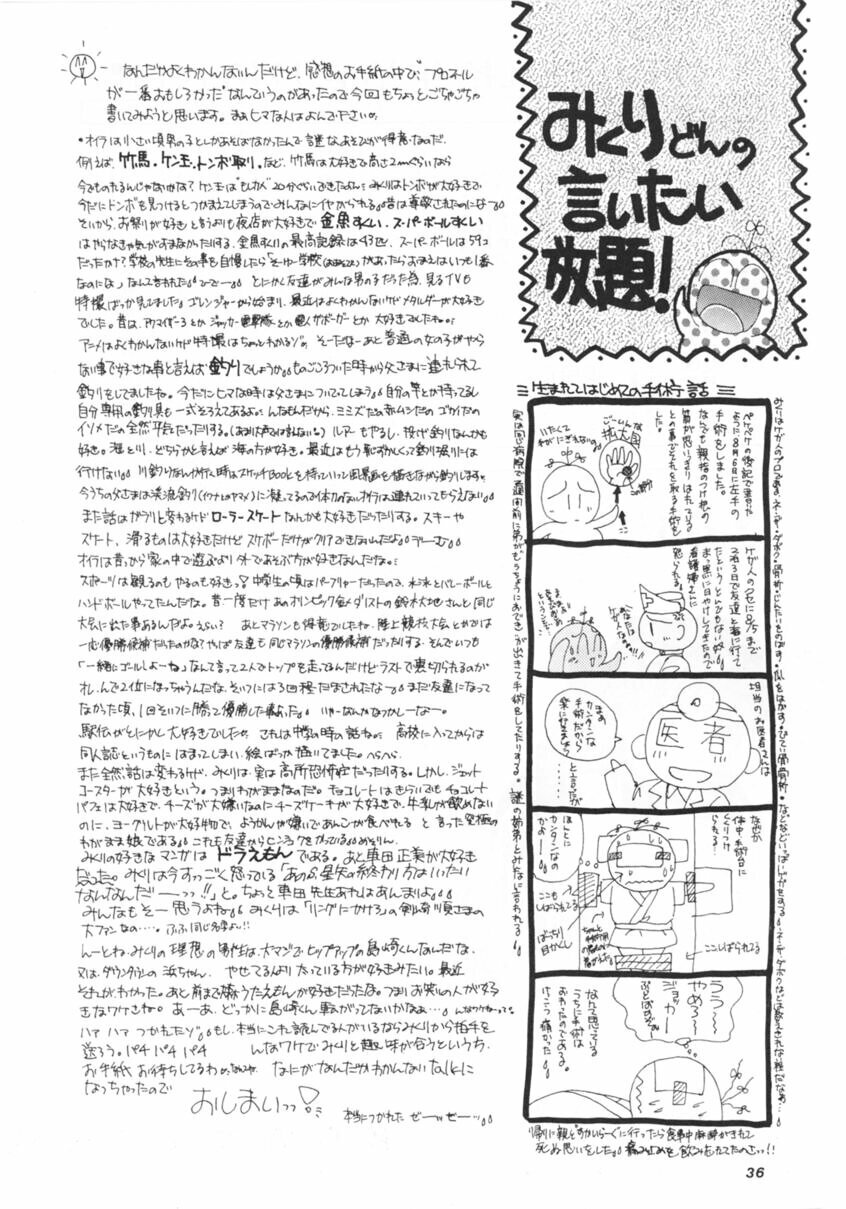 みくりどんの
言いたい
放題!
なんだかよくわかんないんだけど、感想のお手紙の中で"プロフィール
が一番おもしろかった"なんていうのがあったので今回もちょっとごちゃごちゃ
書いてみようと思います。まぁヒマな人はよんで下さいな
・オイラは小さい頃男の子としかあそばなかったんで謎なあそびが得意なのだ。
例えば、竹馬・ケン玉・トンボ取り・など、竹馬は大好きで高さ2mぐらいなら
今でものれるんじゃないかな?ケン玉は"もしカメ"20分ぐらいできたよん。みくりはトンボが大好きで
今だにトンボを見つけるとつかまえてしまうのでみんなにイヤがられる。昔は尊敬されたのになー
それから、お祭りが好きと言うよりも夜店が大好きで金魚すくい、スーパーボールすくい
はやらなきゃ気がすまなかったりする。金魚すくいの最高記録は43匹、スーパーボールは59コ
だったかな?学校の先生にその事を自慢したら「そーゆー学校があったらおまえはいつも1番
なのにな」なんて言われた。とにかく友達がみんな男の子だった為、見るTVも
特撮ばっか見てました。ゴレンジャーから始まり、最近はよくわかんないけどメタルダーが大好き
でした。昔は、アカイダーろとかジャッカー電撃隊とか電人ザボーガーとか大好きでしたね。
アニメはよくわかんないケド特撮はちょっとわかるゾ。そーだなーあと普通の女の子がやら
ない事で好きな事と言えば釣りでしょうか。ものごころついた時から父さまに連れられて
釣りをしてましたね。今だにヒマな時は父さまについてってしまう。自分の竿とか持ってるし
自分専用の釣り具も一式そろえてあるよ。んなもんだから、ミミズだの赤ムシだのゴカイだの
イソメだの全然平気だったりする。(あまり大声では言えない)ルアーもやるし、投げ釣りなんかも
好き。海と川、どちらかと言えば海の方が好き。最近はもう恥ずかしくって釣り堀りには
行けない。川釣りなんか行く時はスケッチBookを持っていって風景画を描きながら釣りします。
今うちの父さまは渓流釣り(イワナとかヤマメ)に凝ってるので体力のないオイラは連れていってもらえない
また話はガラリと変わるケドローラースケートなんかも大好きだったりする。スキーや
スケート、滑るものは大好きだけどスケボーだけがクリアできないんだよ。でーむ
オイラは昔っから家の中で遊ぶより外であそぶ方が好きなんだな。
スポーツは観るのもやるのも好きっ!中学生の頃はパープリャーだったので、水泳とバレーボールと
ハンドボールやってたんだな。昔一度だけあのオリンピック金メダリストの鈴木大地さんと同じ
大会に出た事あるんだよ。えらい?あとマラソンも得意でしたね。陸上競技大会とかでは
一応優勝候補だったのかな?やっぱ友達も同じマラソンの優勝候補だったりする。そんでいつも
「一緒にゴールしよーね」なんて言って2人でトップを走ってるんだけどラストで裏切られるのが
オレ。んで2位になっちゃうんだな。そいつには3回程だまされたなー。まだ友達になって
なかった頃、1回そいつに勝って優勝した事あった。いやーなんかなつかしーなー。
駅伝がとにかく大好きでしたね。これは中学の時の話ね。高校に入ってからは
同人誌というものにはまってしまい絵ばっか描いてました。へらへら。
また全然話は変わるけど、みくりは、実は高所恐怖症だったりする。しかし、ジェット
コースターが大好きという。つまりわがままなのだ。チョコレートはきらいでもチョコレート
パフェは大好きで、チーズが大嫌いなのにチーズケーキが大好きで、牛乳が飲めない
のに、ヨーグルトが大好物で、ようかんや嫌いであんこが食べれると言った究極の
わがまま娘である。これも友達からヒンシュクをかっている。めそりん。
みくりの好きなマンガはドラえもんである。あと車田正美が大好き
だった。みくりは今すっごく怒っている「あの星矢の終わり方はいったい
なんなんだーーっっ!!」と。ちょっと車田先生あれはあんまりよ。
みんなもそー思うよね。みくりは「リングにかけろ」の剣崎順さまの
大ファンなの…。ふふ同じ名字よ!!
んーとね、みくりの理想の男性は、大マジでヒップアップの島崎くんなんだな。
又は、ダウンタウンの浜ちゃん。やせてるより太っている方が好きみたい。最近
それがわかった。あと前まで嘉門たつおが好きだったな。つまりお笑いの人が好
きなワケさね。あーあ、どっかに島崎くん転がってないかなぁ…。んなワケねーって
ハァ ハァ つかれたゾ。もし、本当にこれ読んでる人がいるならみくりから拍手を
送ろう。パチパチパチパチ んなワケでみくりと趣味が合うというち、
お手紙お待ちしてるわ。なにがなんだかわかんないtalkに
なっちゃったので
おしまいっっ!
本当につかれた ぜーッゼーッ
生まれてはじめての手術ゥ話
ペケペケの後記で書いた
ように8月6日に左手の
手術をしました。
なんでも親指のつけ根の
筋が思いっきりはれている
との事でそれを取る手術を
した。
ごーしんな
拡大図
いたくて
わがにぎれないの
この部分
ケガ人のクセに8/5まで
2泊3日で友達と海に行って
たというとんでもない奴。
まっ黒に日やけしてきたので
看護婦さんに
怒られる。
あなたは
ケガ人なのよ!!
担当のお医者さんは
医者
まぁ
カンタンな
手術だから
楽にやりましょう
と言ったが
なぜか
体中、手術台に
くくりつけ
られる…
ほんとに
カンタンなの
かよーー
ここも
しばられてる
ばっちり
目かくし
ここしばられてる
ううー
やめろー
ジョッカー
ぶっとばすぞー
なんて思っている
うちに手術は
おわったのである。
けっこう痛かった
帰りに親とすかいらーくに行ったら食事中麻酔がきれて
死ぬ思いをした。痛み止めを飲みわすれてたのさっ!!
36